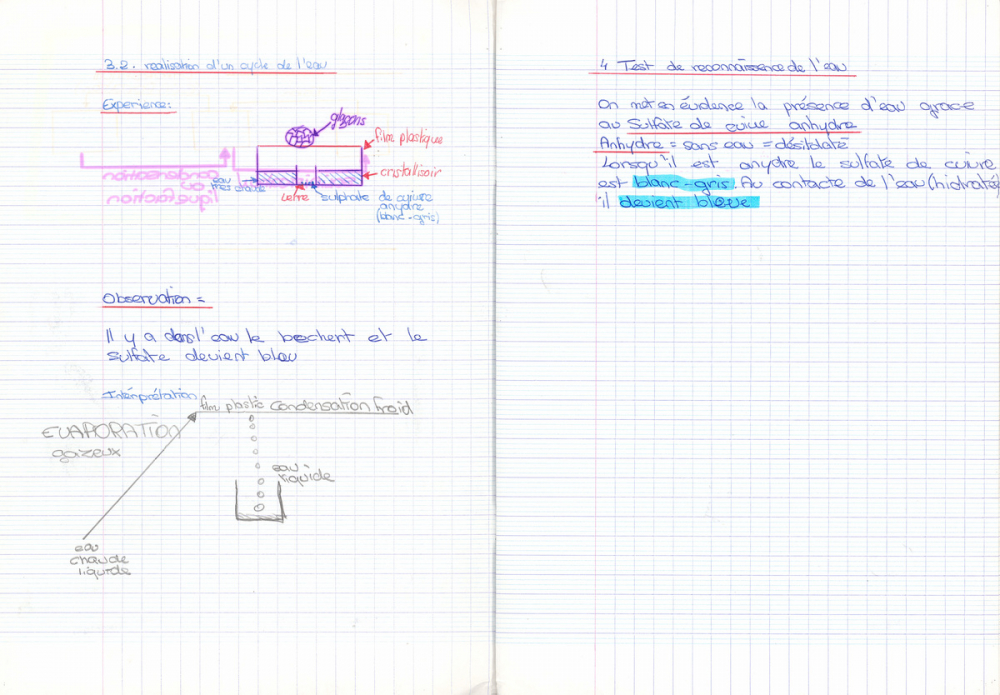 3.2. realisation d'un cycle de l'eau
Experience:
glaçons
film plastique
cristalisoir
eau
très chaude
sulphrate de cuivre
anhydre
(blanc-gris)
condensation
ou
liquefaction
Observation =
Il y a de l'eau le bechert et le
sulfate devient bleu
Intérprélation
film plastic condensation froid
EVAPORATION
gazeux
eau
liquide
eau
chaude
liquide
4 Test de reconnaissence de l'eau
On met en évidence la présence d'eau grace
au sulfate de cuivre anhydre
Anhydre = sans eau =
Lorsqu'il est anydre le sulfate de cuivre
est blanc-gris. Au contacte de l'eau (hidraté)
il devient bleue